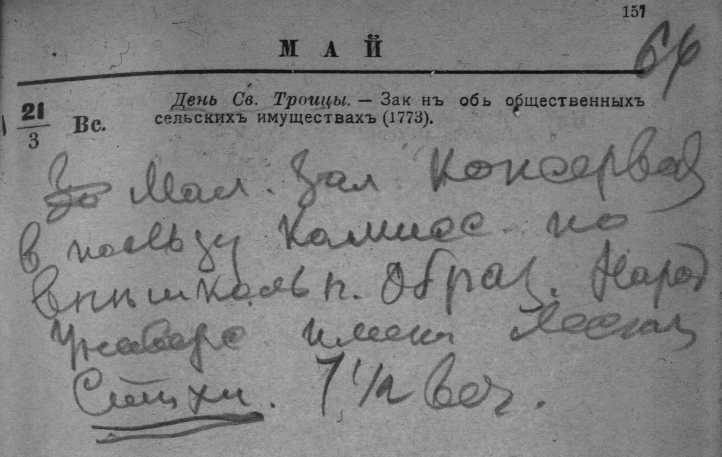 151
66
МАЙ
21
3
Вс.
День Св. Троицы. — Зак нъ объ общественныхъ
сельскихъ имуществахъ (1773).
Мал. Зал Консерва
в пользу Комисс. по
внишкольн. Образ. Народ
имени
Стихи. 7 1/2 веч.